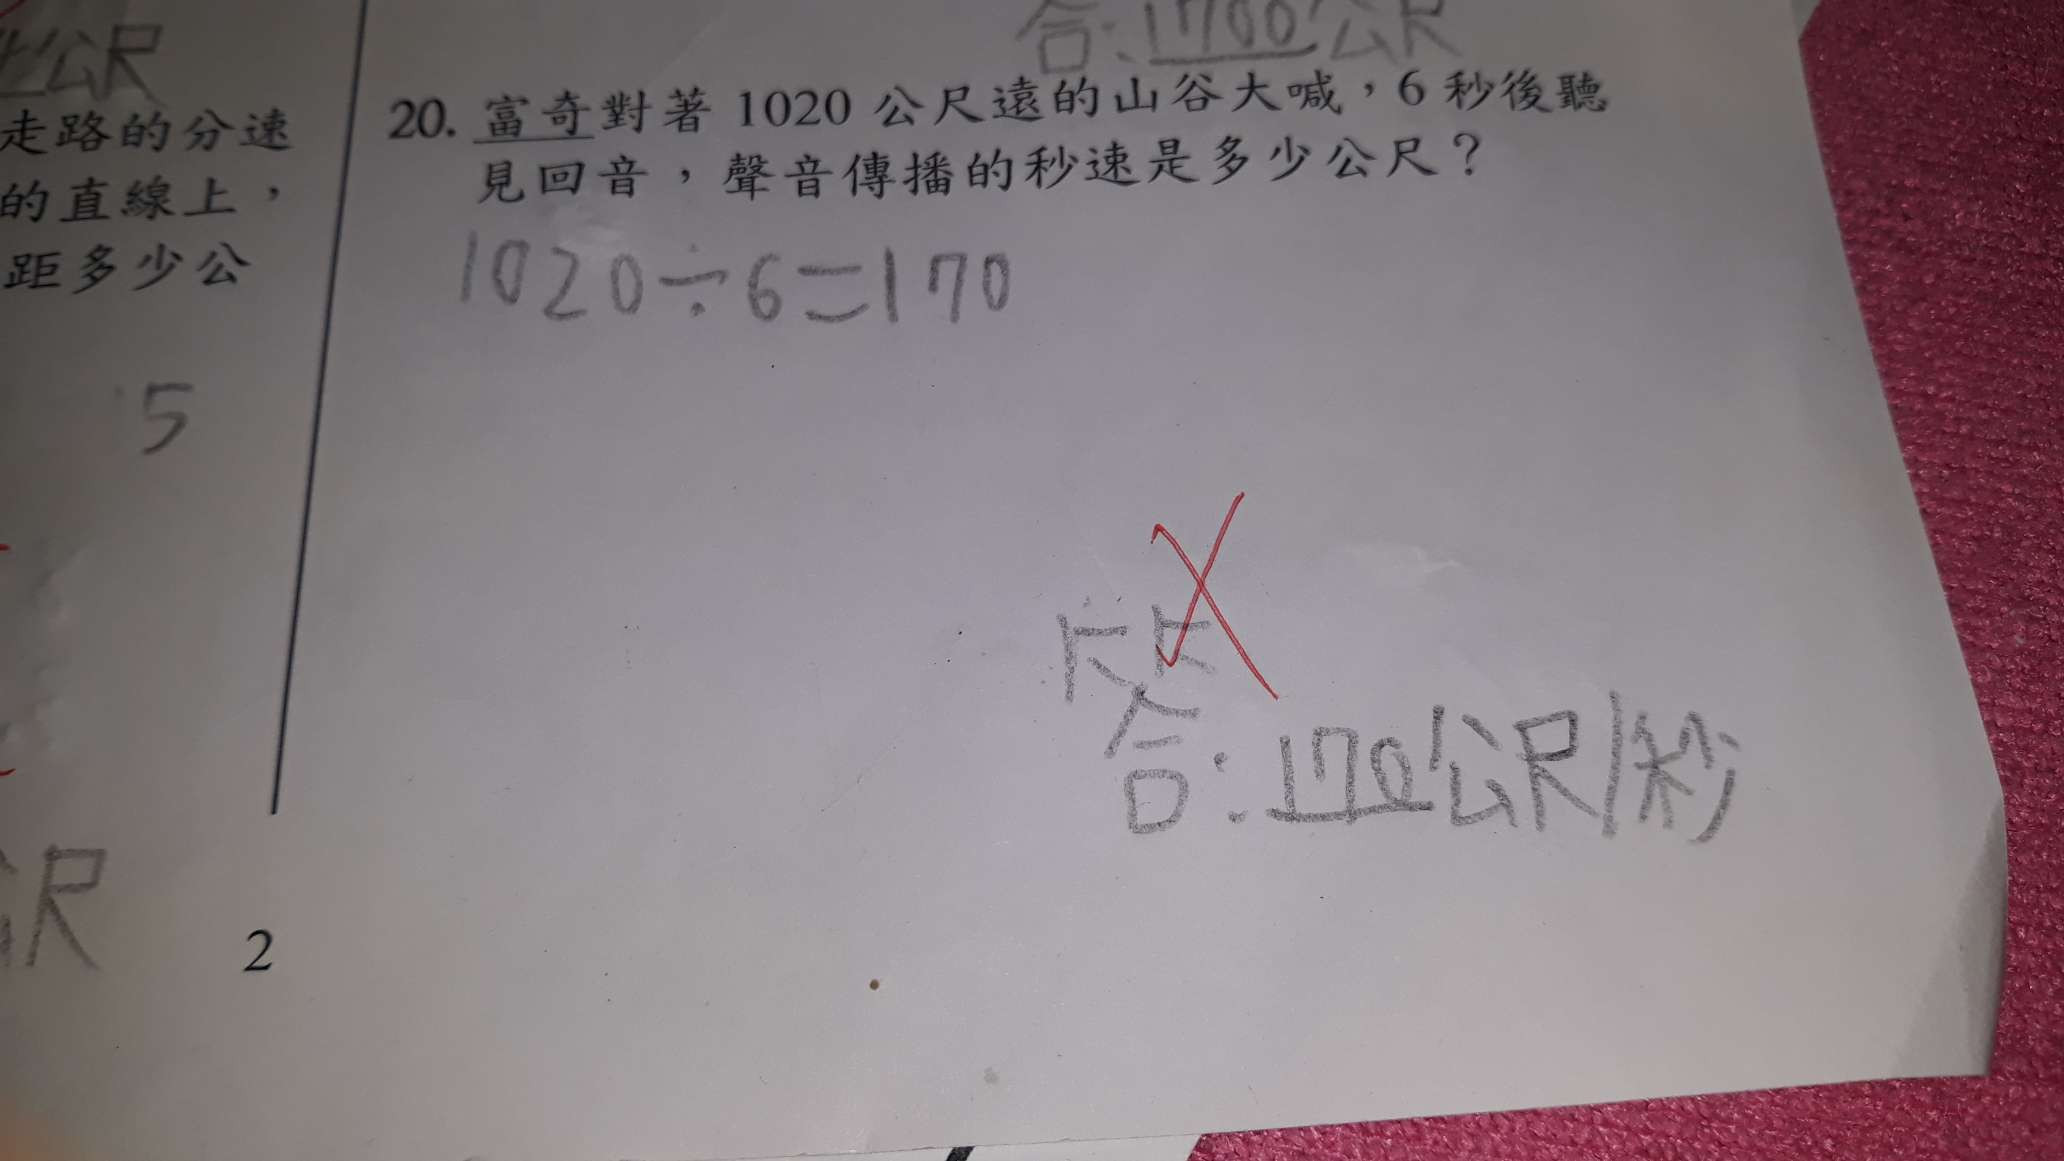 公尺
走路的分速
的直線上，
距多少公
5
尺
2
答:1700公尺
20. 富奇對著 1020 公尺遠的山谷大喊，6 秒後聽
見回音，聲音傳播的秒速是多少公尺？
1020÷6=170
答:170公尺/秒